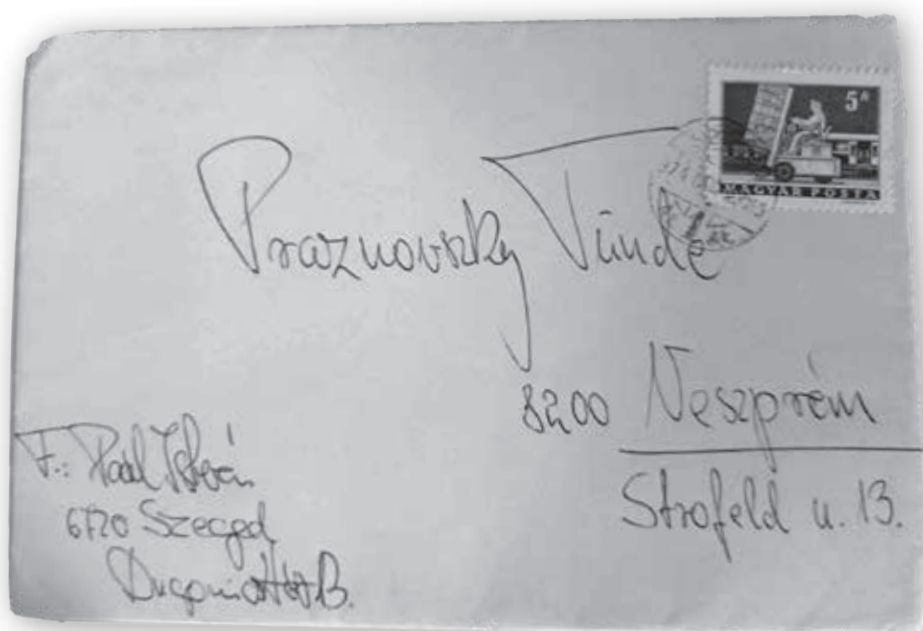 5 Ft
MAGYAR POSTA
Praznovszky Tünde
8200 Veszprém
Strofeld u. 13.
F.: Paál István
6720 Szeged